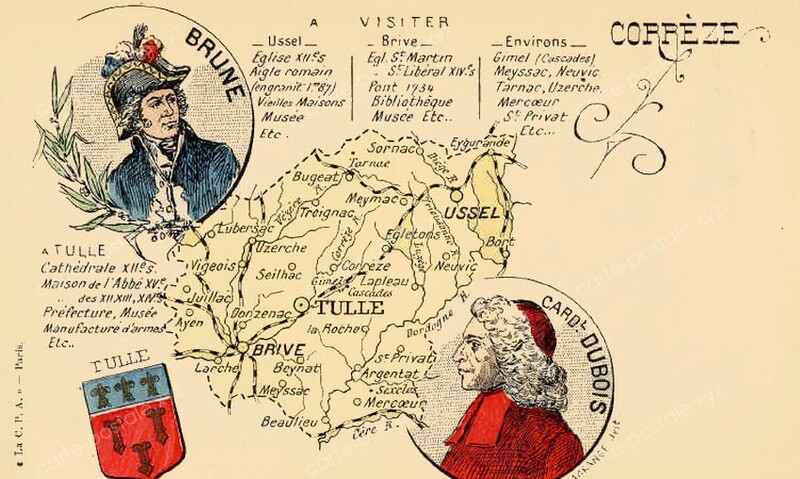 A VISITER
CORRÈZE
Ussel
Eglise XIIe s
Aigle romain
(en granit 1m87)
Vieilles Maisons
Musée
Etc.
Brive
Egl. St Martin
St Libéral XIVe s.
Pont 1734
Bibliothèque
Musée Etc..
Environs
Gimel (Cascades)
Meyssac, Neuvic,
Tarnac, Uzerche,
Mercœur
St Privat
Etc...
BRUNE
A TULLE
Cathédrale XIIe s.
Maison de l'Abbé XVe
„ des XII, XIII, XIVe s
Préfecture, Musée
Manufacture d'armes
Etc..
Sornac
Eygurande
Tarnac
Diège R.
Bugeat
Meymac
USSEL
Treignac
Vézère R.
Lubersac
Uzerche
Corrèze R.
Egletons
Bort
Luzège
Vigeois
Seilhac
Corrèze
Neuvic
Gimel
Lapleau
Cascades
Juillac
TULLE
Donzenac
Ayen
la Roche
Dordogne R.
BRIVE
St Privat
Larche
Beynat
Argentat
Meyssac
Mercœur
Beaulieu
Cère R.
CARDL DUBOIS
TULLE
« La C. P. A. » — Paris.
carte-postale-xyz